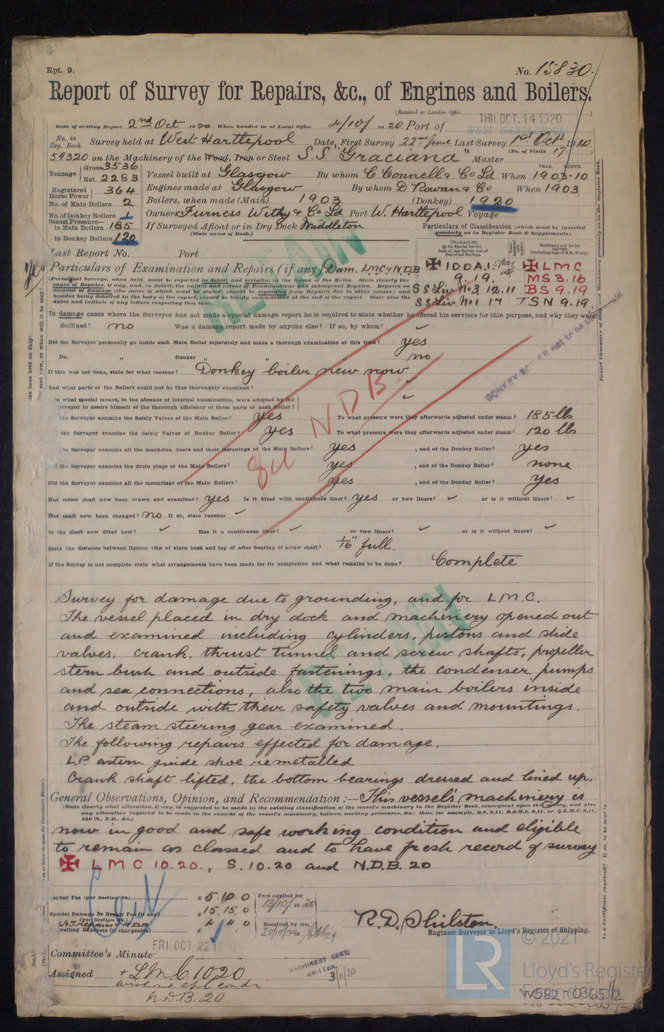 Rpt. 9.
No. 15830.
Report of Survey for Repairs, &c., of Engines and Boilers.
(Received at London Office
THU. OCT. 14 1920
Date of writing Report 2nd Oct 1920 When handed in at Local Office 4/10/1920 Port of WEST HARTLEPOOL
No. in Reg. Book. Survey held at West Hartlepool Date, First Survey 22nd June Last Survey 1st Oct 1920
(No. of Visits 17)
59320 on the Machinery of the Wood, Iron or Steel S.S. "Graciana" Master
Tonnage Gross 3536 Net 2283
Vessel built at Glasgow By whom C Connell & Co Ld When 1903-10
Registered Horse Power 364
Engines made at Glasgow By whom D Rowan & Co When 1903
No. of Main Boilers 2
Boilers, when made (Main) 1903 (Donkey) 1920
No. of Donkey Boilers 1
Owners Furness Withy & Co Ld Port W. Hartlepool Voyage
Steam Pressure in Main Boilers 185
in Donkey Boilers 120
If Surveyed Afloat or in Dry Dock Middleton
(State name of Dock.)
Particulars of Classification (which must be inserted precisely as in Register Book & Supplements).
Last Report No. Port
Particulars of Examination and Repairs (if any) Dam, LMC & NDB
100A1.
9.19.
SS Liv No3 12.11
SS Liv No1 17
LMC
MS 3.16
BS 9.19
TSN 9.19
In damage cases where the Surveyor has not made a separate damage report he is required to state whether he offered his services for this purpose, and why they were
declined? no Was a damage report made by anyone else? If so, by whom?
Did the Surveyor personally go inside each Main Boiler separately and make a thorough examination at this time? yes
Do. " Donkey " no
If this was not done, state for what reasons? Donkey boiler new now
And what parts of the Boilers could not be thus thoroughly examined?
the Surveyor examine the Safety Valves of the Main Boiler? Yes To what pressure were they afterwards adjusted under steam? 185 lbs
the Surveyor examine the Safety Valves of Donkey Boiler? Yes To what pressure were they afterwards adjusted under steam? 120 lbs
the Surveyor examine all the manholes, doors and their fastenings of the Main Boilers? Yes , and of the Donkey Boiler? yes
the Surveyor examine the drain plugs of the Main Boilers? yes , and of the Donkey Boiler? none
Did the Surveyor examine all the mountings of the Main Boilers? yes , and of the Donkey Boiler? Yes
Has screw shaft now been drawn and examined? yes Is it fitted with continuous liner? yes or two liners? or is it without liners?
Has shaft now been changed? No If so, state reasons
Is the shaft now fitted new? Has it a continuous liner? or two liners? or is it without liners?
State the distance between lignum vitæ of stern bush and top of after bearing of screw shaft? 1/16" full.
If the Survey is not complete state what arrangements have been made for its completion and what remains to be done? Complete
Survey for damage due to grounding, and for LMC.
The vessel placed in dry dock and machinery opened out
and examined including cylinders, pistons and slide
valves, crank, thrust tunnel and screw shafts, propeller
stern bush and outside fastenings, the condenser, pumps
and sea connections, also the two main boilers inside
and outside with their safety valves and mountings.
The steam steering gear examined.
The following repairs effected for damage.
LP astern guide shoe remetalled
Crank shaft lifted, the bottom bearings dressed and lined up.
General Observations, Opinion, and Recommendation:— This vessel's machinery is
now in good and safe working condition and eligible
to remain as classed and to have fresh record of survey
LMC 10.20., S.10.20 and N.D.B. 20
Survey Fee £ 5.10.0
Special Damage or Repair Fee (if any) 15.15.0
4.4.0
Fees applied for 13/10/1920
Received by me,
R.D. Shilston
Engineer Surveyor to Lloyd's Register of Shipping.
Committee's Minute FRI. OCT. 22
Assigned + LMC 10 20
N.D.B. 20
MACHINERY CERT. WRITTEN
© 2021
Lloyd's Register
Foundation
W582-0165